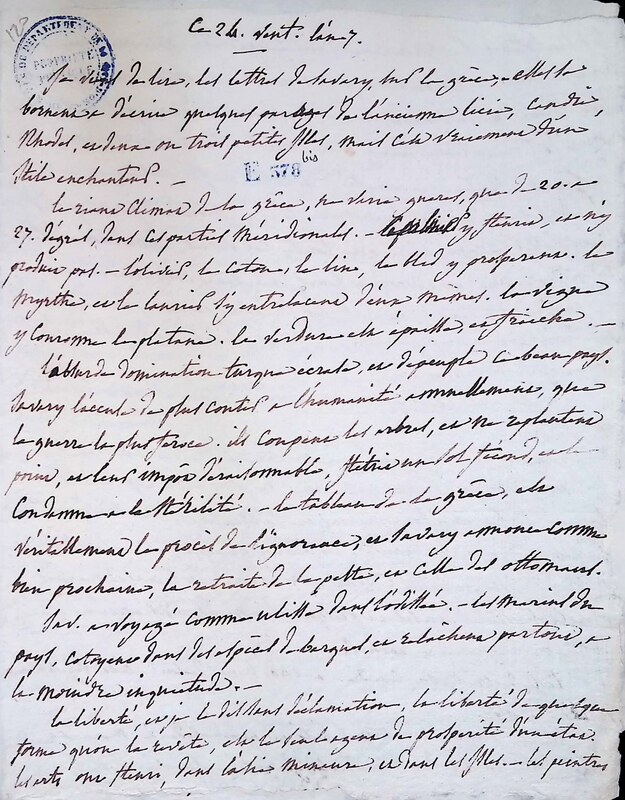 127
Ce 24. Vent. l'an 7.
DU DEPARTEMENT DE
PROPRIÉTÉ
PUBLIQUE
Je viens de lire, les lettres de Savary, sur la grèce, elles se
bornent a décrire quelques parties de l'ancienne licie, Candie
Rhodes, et deux ou trois petites Isles, mais c'est vraiment d'un
stile enchanteur. —
E 378 bis
le riant Climat de la grèce, ne varie gueres, que de 20. a
27. degrés, dans ces parties Méridionales. — y fleurit, et n'y
produit pas. — l'olivier, le coton, le lin, le bled y prosperent. le
myrthe, et le laurier s'y entrelacent d'eux mêmes. la vigne
y couronne le platane. la verdure est épaisse, et fraiche. —
l'absurde domination turque écrase, et dépeuple ce beau pays.
Savary l'accuse de plus couter a l'humanité annuellement, que
la guerre la plus feroce. ils coupent les arbres, et ne replantent
point, et leur impôt déraisonnable, flétrit un sol fécond, et le
Condamne a la stérilité. — le tableau de la grèce, est
véritablement le procès de l'ignorance, et Savary annonce comme
bien prochaine, la retraite de la peste, et celle des ottomans.
Sav. a voyagé comme ulisse dans l'odissée. — les marins du
pays, cotoyent dans des espèces de barques, et relâchent partout, a
la moindre inquietude. —
la liberté, et je le dis sans déclamation, la liberté de quelque
forme qu'on la revête, est le seul agent de prosperité d'un état.
les arts ont fleuri, dans l'asie mineure, et dans les Isles. — les peintres